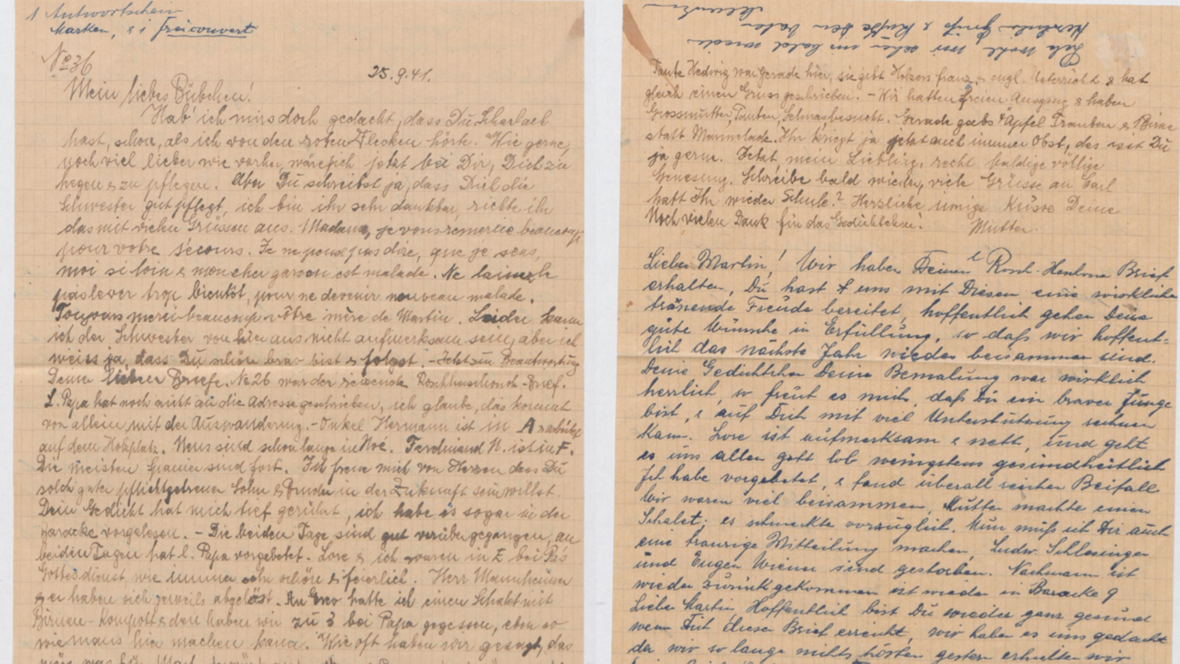 1 Antwortschein
Marken, & 1 Freicouvert
No 36
25.9.41.
Mein liebes Bübchen!
Hab' ich mirs doch gedacht, dass Du Scharlach
hast, schon, als ich von den roten Flecken hörte. Wie gerne,
noch viel lieber wie vorher, wäre ich jetzt bei Dir, Dich zu
hegen & zu pflegen. Aber Du schreibst ja, dass Dich die
Schwester gut pflegt, ich bin ihr sehr dankbar, richte ihr
das mit vielen Grüssen aus. Madame, je vous remercie beaucoup
pour votre secours. Je ne peux pas dire, que je
moi si loin & mon cher garson est malade. Ne
pas lever trop bientôt, pour ne devenir nouveau malade.
Toujours merci beaucoup mère de Martin. Leider kann
ich der Schwester von hier aus nicht aufmerksam sein, aber ich
weiss ja, dass Du schön brav bist & folgst. – Jetzt zur Beantwortung
Deiner lieben Briefe. No 26 war der reizende Roschhaschonoh-Brief.
L. Papa hat noch nicht an die Adresse geschrieben, ich glaube, das kommt
von allein mit der Auswanderung. – Onkel Hermann ist in
auf dem Holzplatz. Neus sind schon lange in Noé. Ferdinand N. ist in F.
Die meisten Männer sind fort. Ich freue mich von Herzen dass Du
solch guter pflichtgetreuer Sohn & Bruder in der Zukunft sein willst.
Dein Gedicht hat mich tief gerührt, ich habe es sogar in der
Baracke vorgelesen. – Die beiden Tage sind gut vorübergegangen, an
beiden Tagen hat l. Papa vorgebetet. Lore & ich waren in E bei Pa's
Gottesdienst wie immer sehr schön & feierlich. Herr Mannheimer
& er haben sich jeweils abgelöst. An Erev hatte ich einen Schalet mit
Birnen-Kompott & den haben wir zu 3 bei Papa gegessen, eben so
wie mans hier machen kann. Wie oft haben wir gesagt, das
Lebe wohl, wir sehen uns bald wieder
Herzliche Grüße & Küsse
Tante Hedwig war gerade hier, sie gibt Holzers franz. & engl. Unterricht & hat
gleich einen Gruss geschrieben. – Wir hatten freien Ausgang & haben
Grossmutter, Tanten, besucht. Gerade gab's Äpfel Trauben & Birne
statt Marmelade. Ihr kriegt ja jetzt auch immer Obst, das isst Du
ja gern. Jetzt mein Liebling, recht baldige völlige
Genesung. Schreibe bald wieder, viele Grüsse an Carl
habt Ihr wieder Schule? Herzliche innige Küsse Deine
Noch vielen Dank für das Gedichtchen! Mutter.
Lieber Martin! Wir haben Deinen l. Rosch-Haschono Brief
erhalten, Du hast uns mit Diesen eine wirklich
tränende Freude bereitet, hoffentlich gehen Deine
gute Wünsche in Erfüllung, so daß wir hoffent-
lich das nächste Jahr wieder beisammen sind.
Deine Gedichtchen Deine Bemalung war wirklich
herrlich, so freut es mich, daß Du ein braver Junge
bist, & auf Dich mit viel Unterstützung rechnen
kann. Lore ist aufmerksam & nett, und geht
es uns allen gott lob wenigstens gesundheitlich
Ich habe vorgebetet, & fand überall seinen Beifall
Wir waren viel beisammen, Mutter machte einen
Schalet; es schmeckte vorzüglich. Nun muß ich Dir auch
eine traurige Mitteilung machen, Ludw. Schlesinger
und Eugen Wiener sind gestorben. Nachmann ist
wieder zurückgekommen ist wieder in Baracke 9
Liebe Martin, Hoffentlich bist Du wieder ganz gesund
wenn Dir diese Brief erreicht, wir haben es uns gedacht
da wir so lange nichts hörten gestern erhielten wir